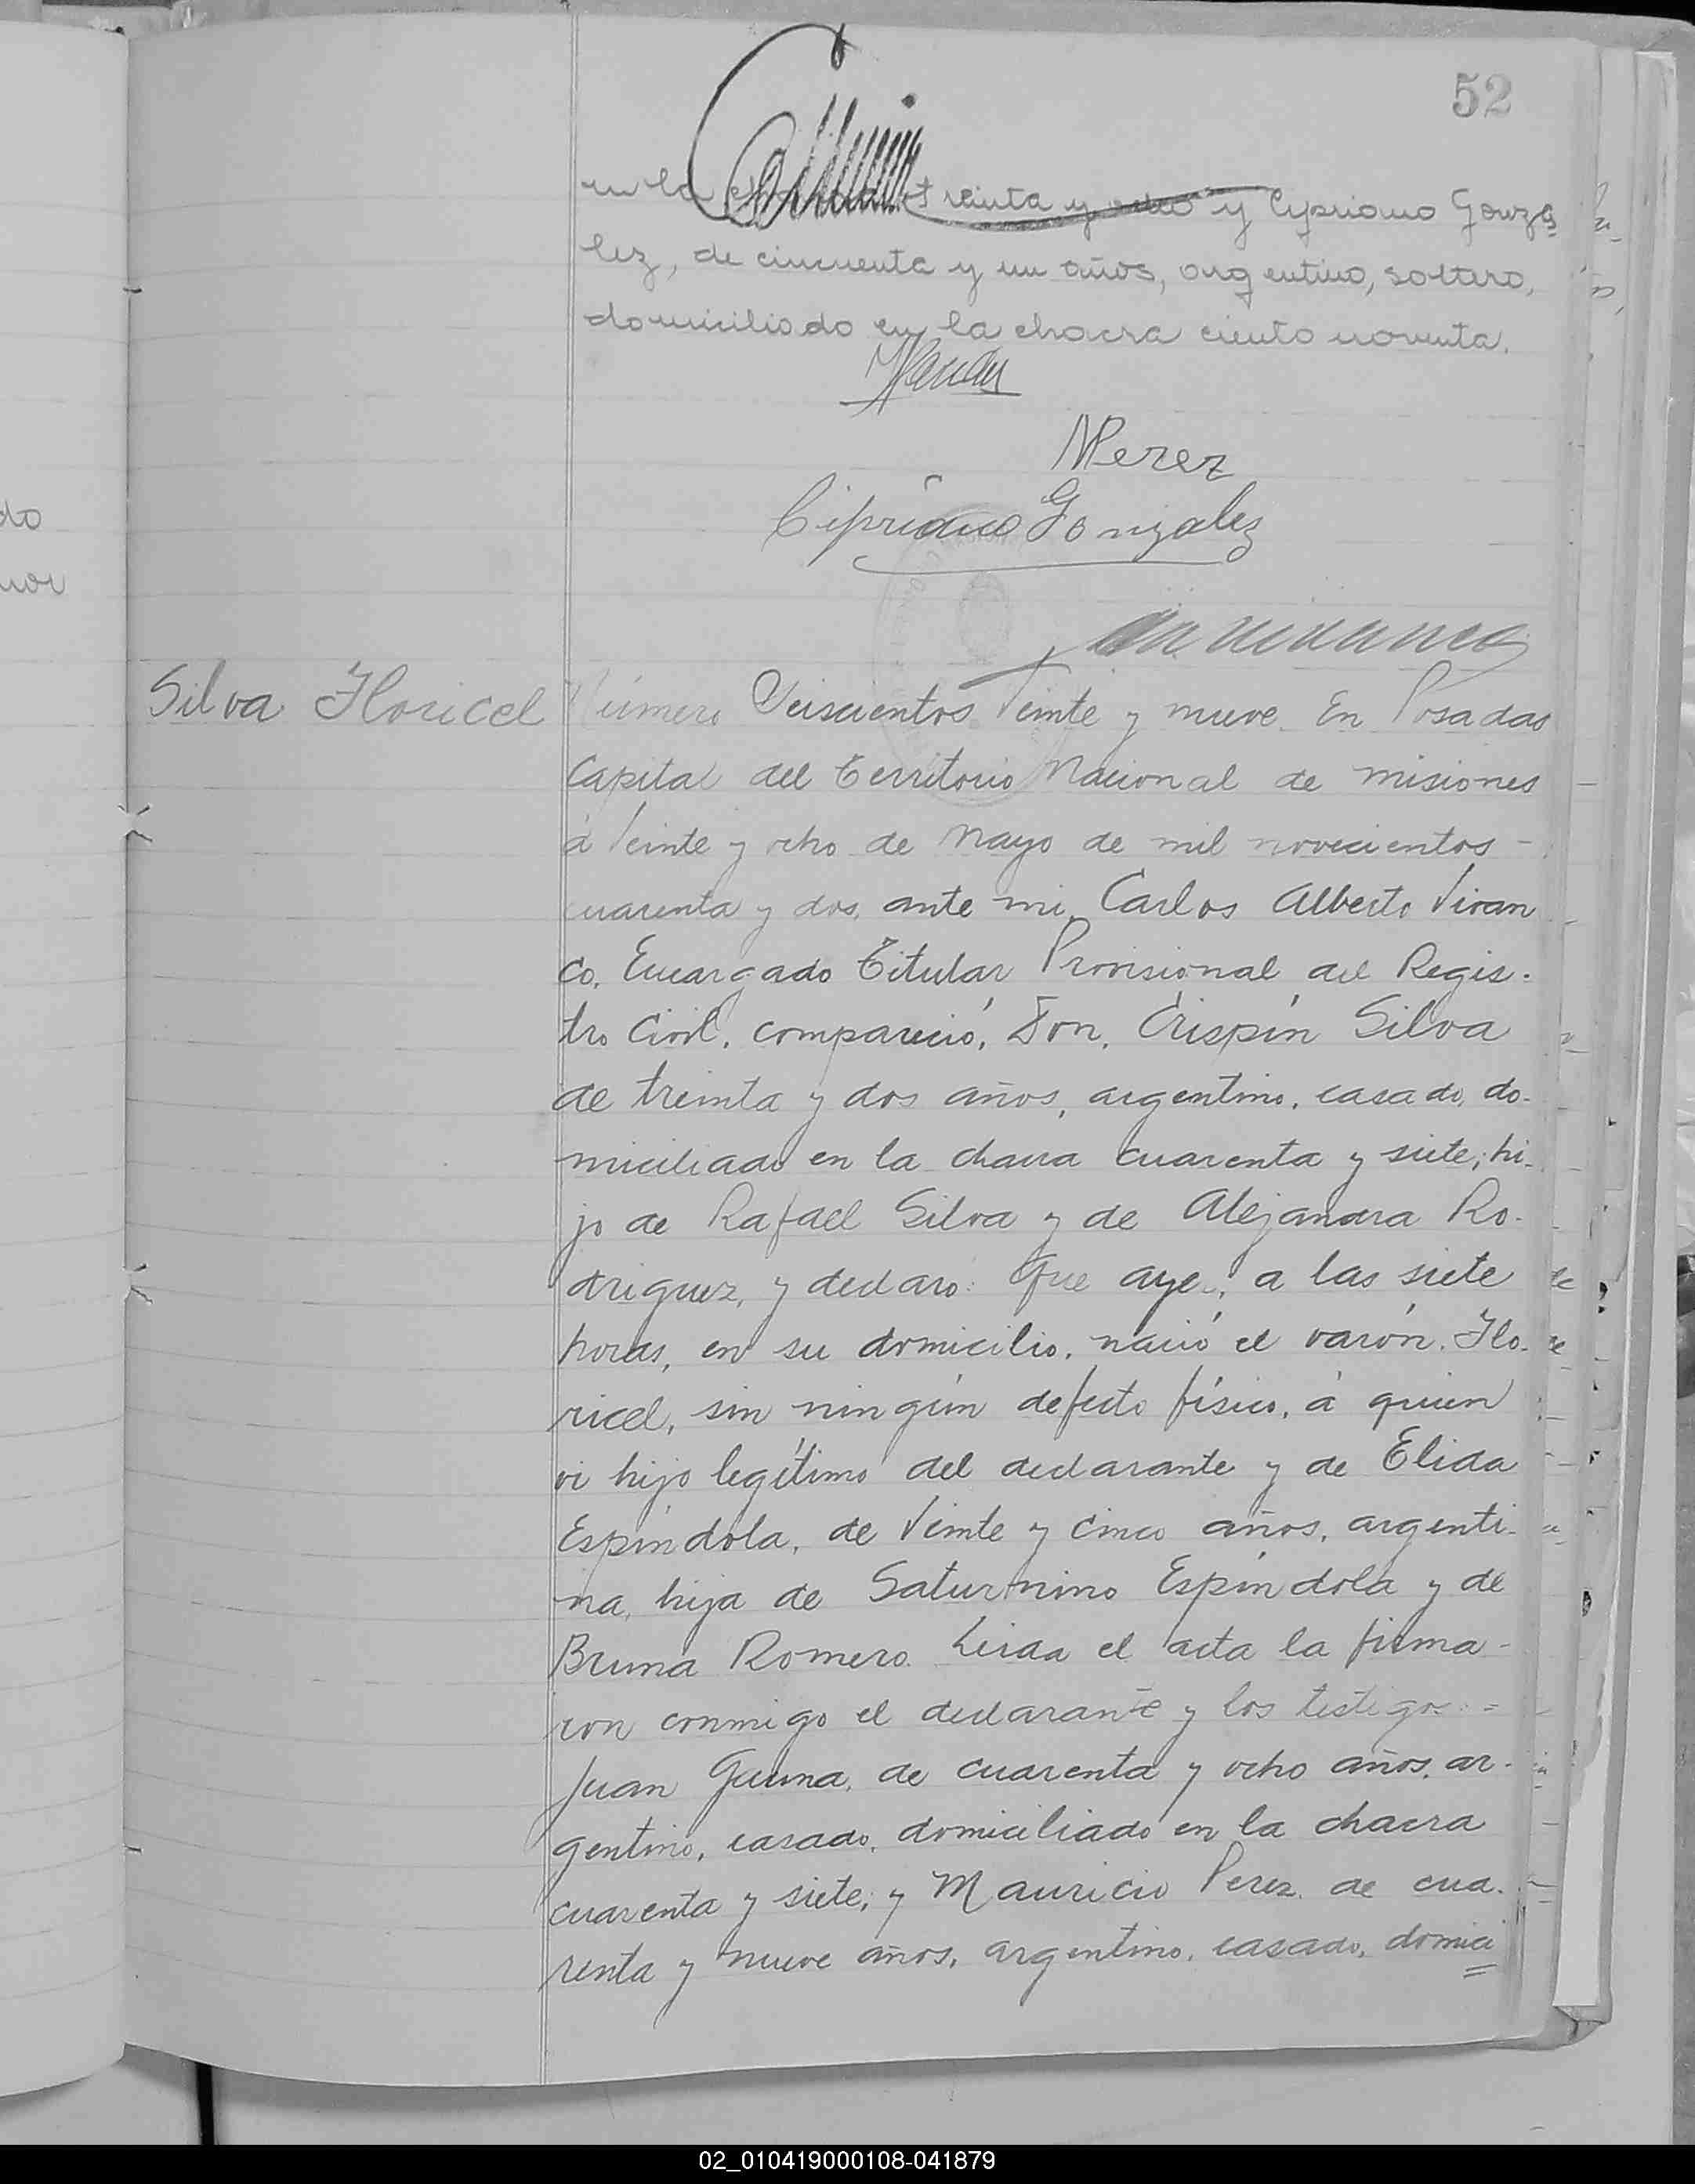 52
en la chacra treinta y ocho y Cypriano Gonza
lez, de cincuenta y un años, argentino, soltero,
domiciliado en la chacra ciento noventa.
MPerez
Cipriano Gonzalez
do
Silva Floricel
Número Seiscientos Veinte y nueve. En Posadas
Capital del Territorio Nacional de Misiones
á Veinte y ocho de Mayo de mil novecientos -
cuarenta y dos, ante mi, Carlos Alberto Vivan
co, Encargado Titular Provisional del Regis-
tro Civil, compareció, Don, Crispín Silva
de treinta y dos años, argentino, casado, do-
miciliado en la chacra cuarenta y siete, hi-
jo de Rafael Silva y de Alejandra Ro-
driguez, y declaró: Que ayer, a las siete
horas, en su domicilio, nació el varón, Flo-
ricel, sin ningún defecto físico, á quien
vi hijo legítimo del declarante y de Elida
Espíndola, de Veinte y cinco años, argenti-
na, hija de Saturnino Espíndola y de
Bruna Romero. Leida el acta la firma-
ron conmigo el declarante y los testigos =
Juan Gauna, de cuarenta y ocho años, ar-
gentino, casado, domiciliado en la chacra
cuarenta y siete; y Mauricio Perez, de cua-
renta y nueve años, argentino, casado, domici
02_010419000108-041879